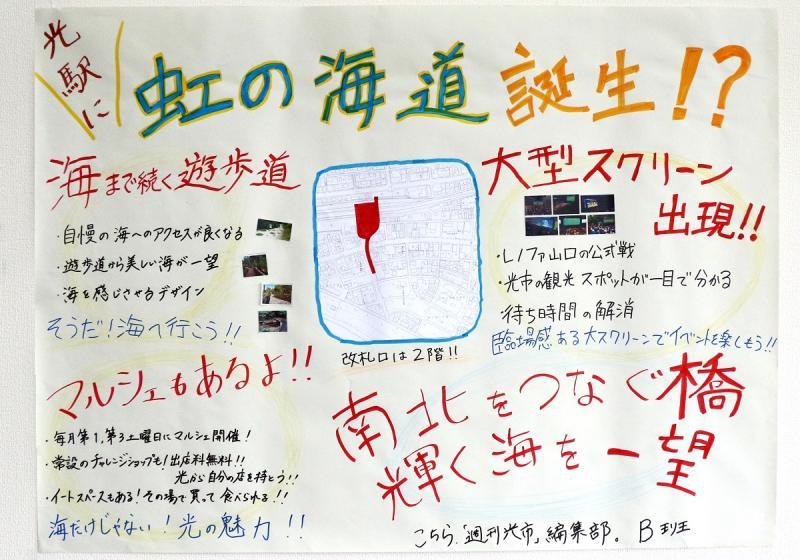 光駅に
虹の海道誕生!?
海まで続く遊歩道
・自慢の海へのアクセスが良くなる
・遊歩道から美しい海が一望
・海を感じさせるデザイン
そうだ!海へ行こう!!
改札口は2階!!
大型スクリーン
出現!!
・レノファ山口の公式戦
・光市の観光スポットが一目で分かる
・待ち時間の解消
臨場感ある大スクリーンでイベントを楽しもう!!
マルシェもあるよ!!
・毎月第1,第3土曜日にマルシェ開催!
・常設のチャレンジショップも!出店料無料!!
光から自分の店を持とう!!
・イートスペースもある!その場で買って食べられる!!
海だけじゃない!光の魅力!!
南北をつなぐ橋
輝く海を一望
こちら、「週刊光市」編集部。 B班